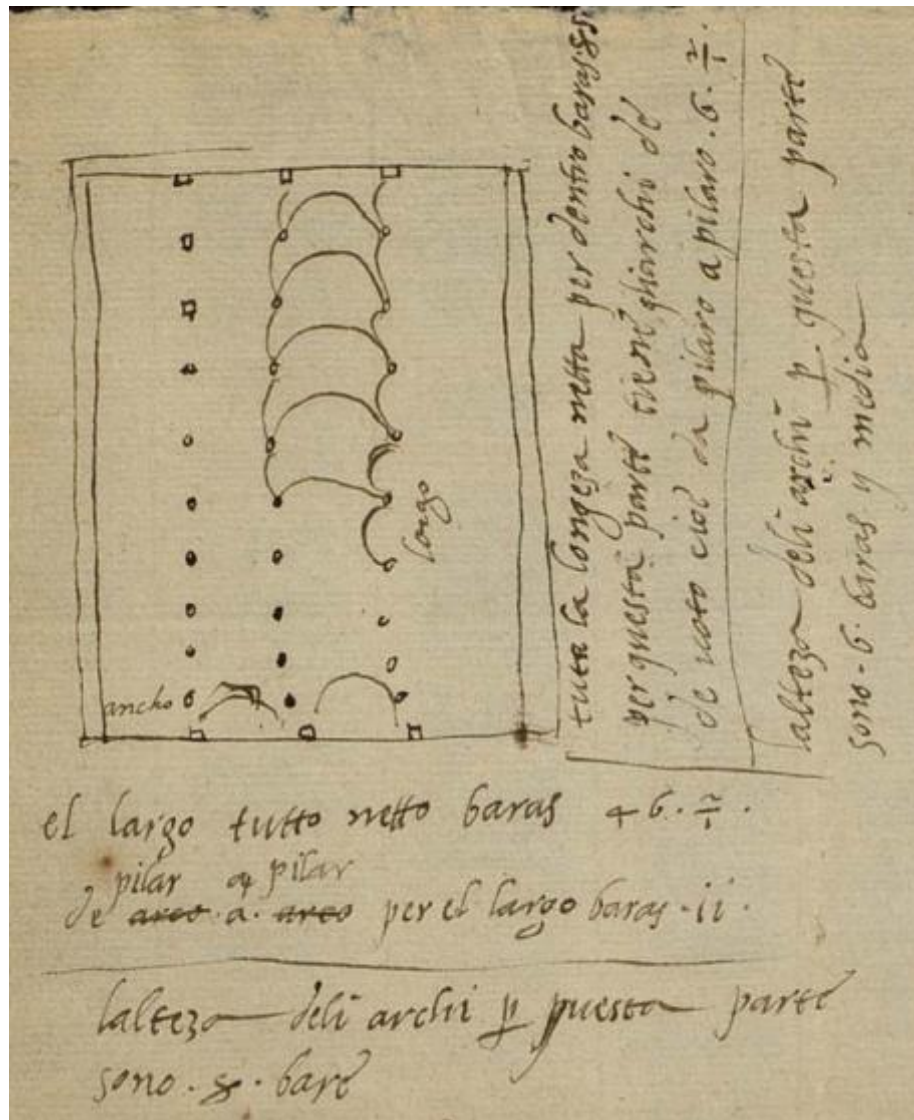 tuta la longeza netta per dentro baras
per questa parte tiene gharchi de
de voto cioè da pilaro a pilaro . 6 . 2/1 .
lalteza deli archi p. questa parte
sono . 6 . baras y media
longo
ancho
el largo tutto netto baras 46 . 2/1 .
pilar a pilar
de arco a . arco per el largo baras . ii .
lalteza deli archi p questa parte
sono . 8 . bare